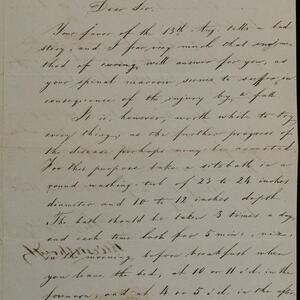 Dear Sir.
Your favor of the 13th Aug. tells a bad
story, and I fear very much that no me,
thod of curing will answer for you, as
your spinal marrow seems to suffer, in
consequence of the injury by a fall.
It is, however, worth while to try
every thing, as the further progress of
the disease perhaps may be arrested.
For this purpose take a sitzbath in a
round washing-tub of 23 to 24 inches
diameter and 10 to 12 inches depth.
The bath should be taken 3 times a day,
and each time last for 5 min:, viz:
in the morning before breakfast when
you leave the bed, at 10 or 11 in the
forenoon, and at 4 or 5 in the after